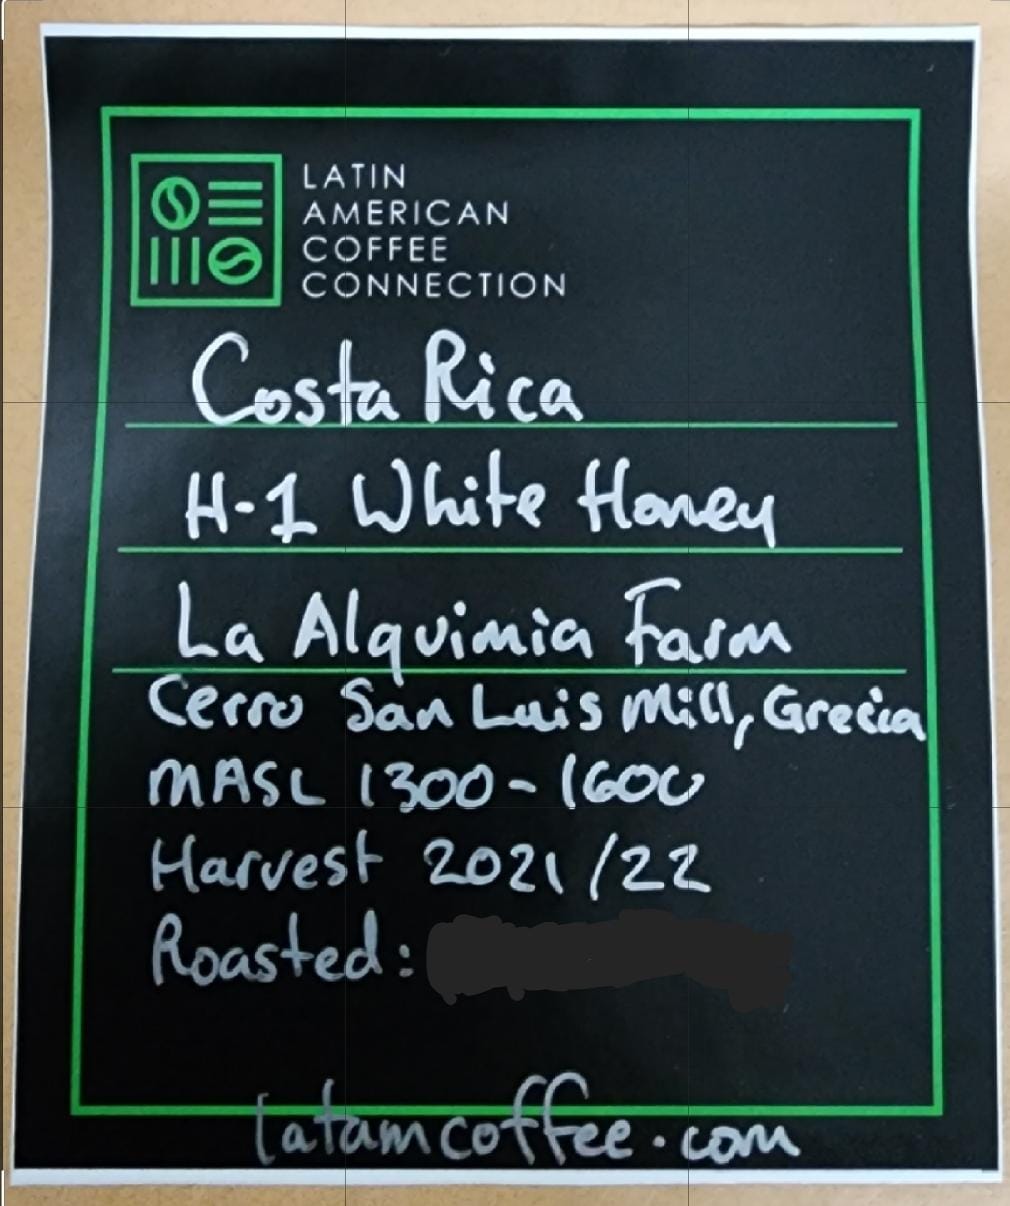 LATIN
AMERICAN
COFFEE
CONNECTION
Costa Rica
H-1 White Honey
La Alquimia Farm
Cerro San Luis Mill, Grecia
MASL 1300-1600
Harvest 2021/22
Roasted:
latamcoffee.com